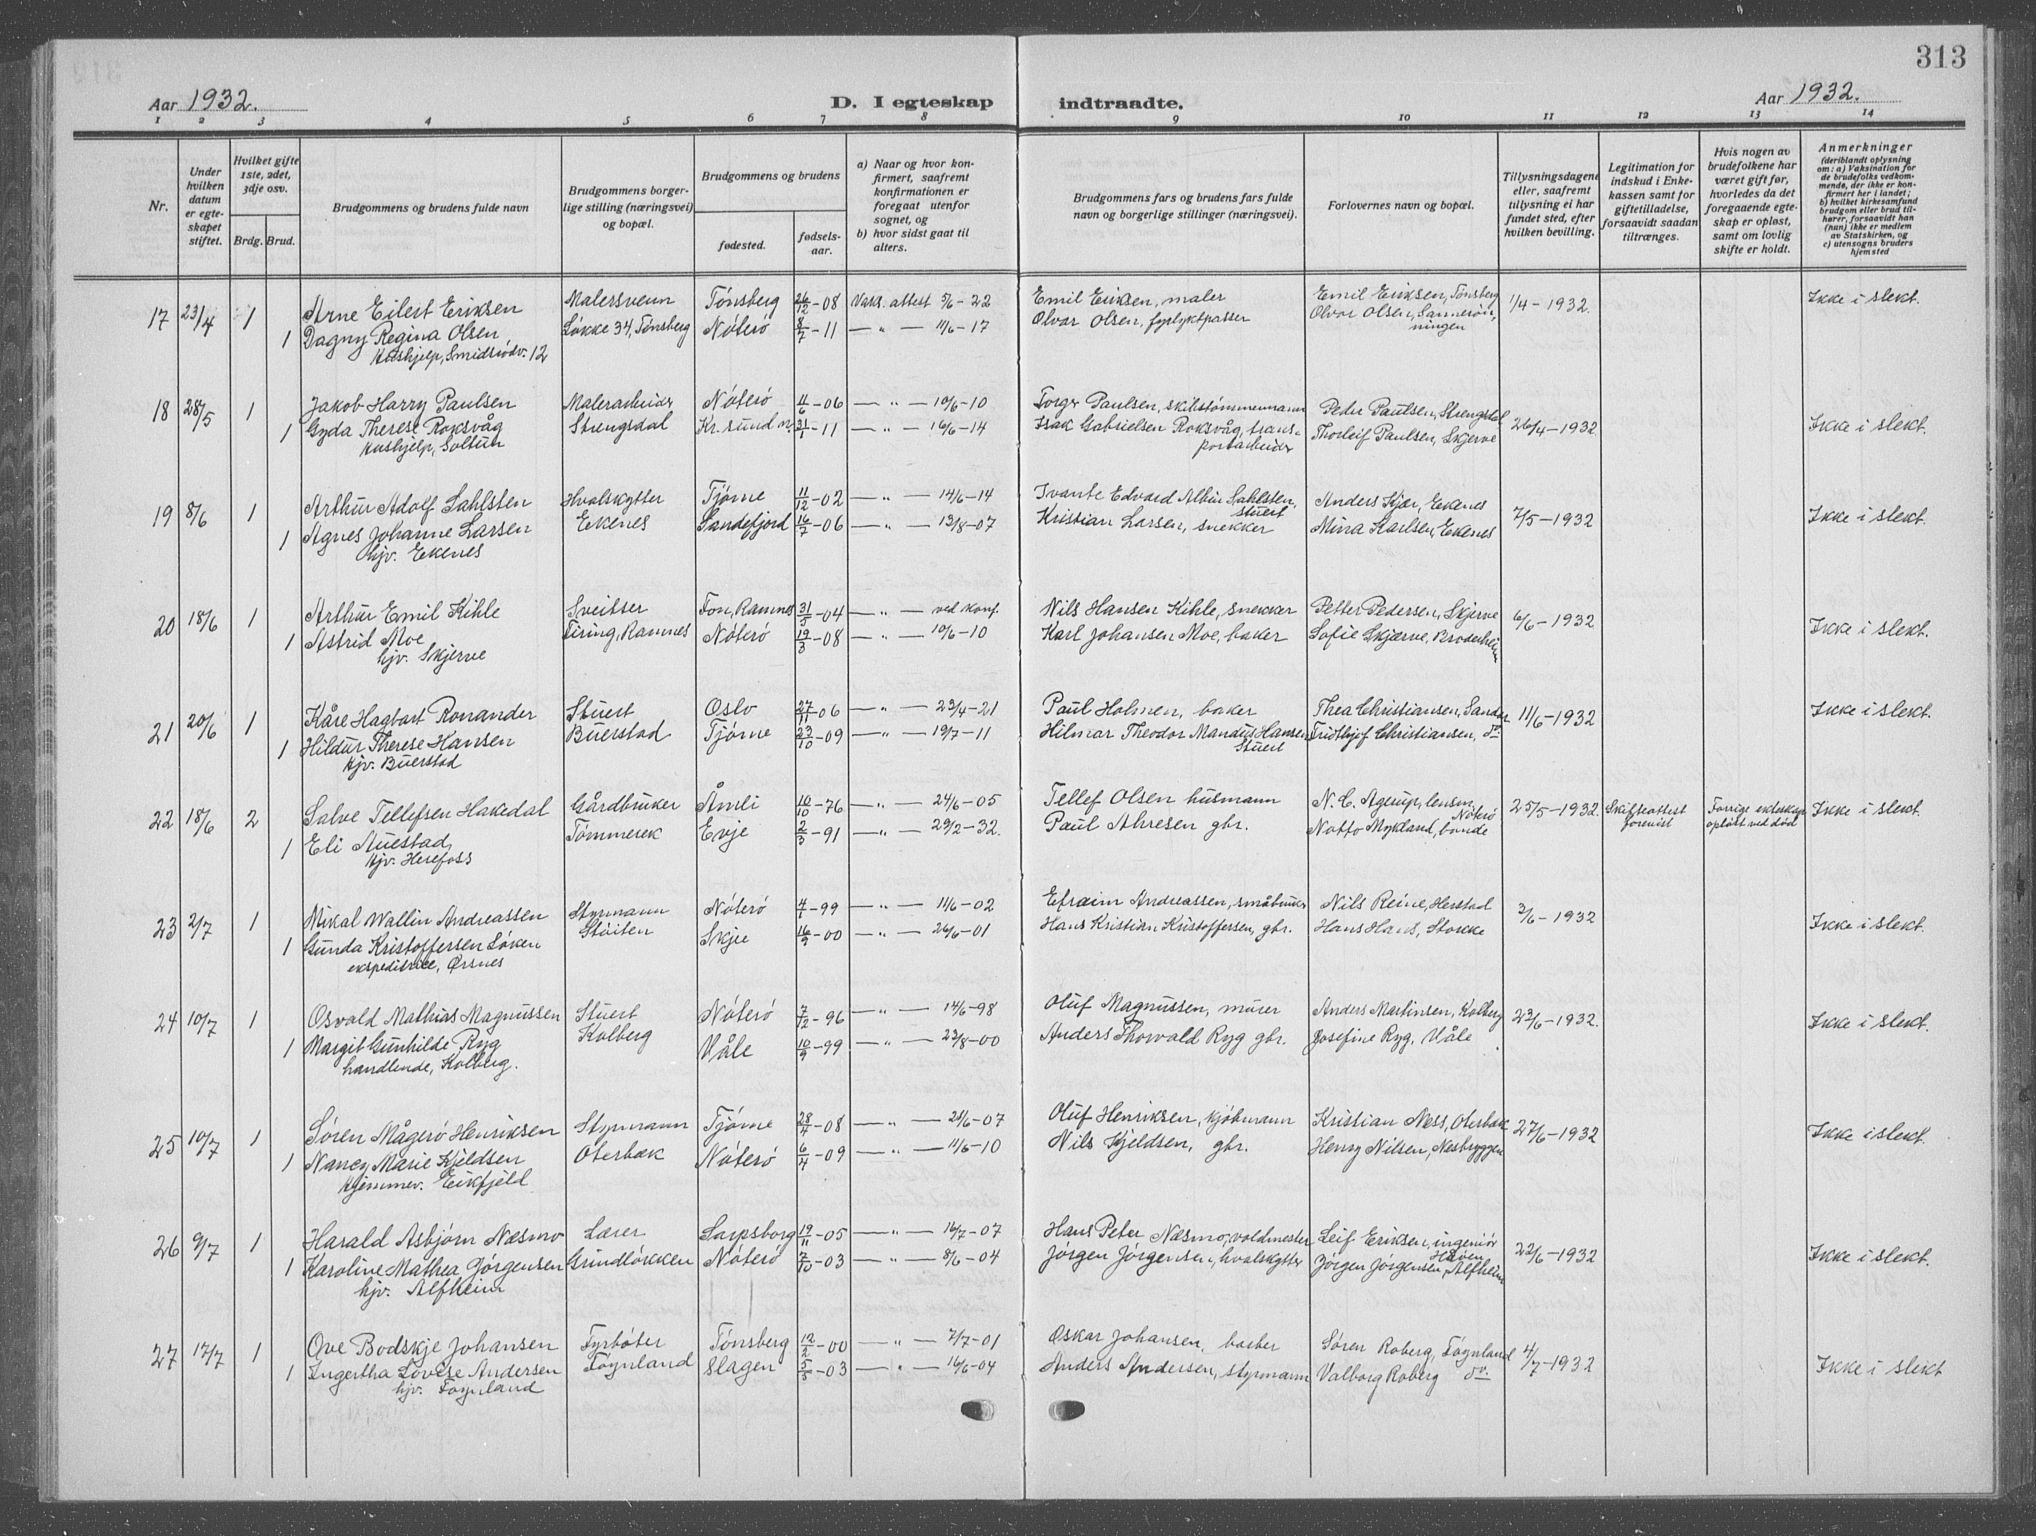 313
Aar 1932.
D. I egteskap indtraadte.
Aar 1932.
1 2 3 4 5 6 7 8 9 10 11 12 13 14
Nr.
Under hvilken datum er egteskapet stiftet.
Hvilket gifte 1ste, 2det, 3dje osv.
Brdg. Brud.
Brudgommens og brudens fulde navn
Brudgommens borgerlige stilling (næringsvei) og bopæl.
Brudgommens og brudens
fødested.
fødselsaar.
a) Naar og hvor konfirmert, saafremt konfirmationen er foregaat utenfor sognet, og
b) hvor sidst gaat til alters.
Brudgommens fars og brudens fars fulde navn og borgerlige stillinger (næringsvei).
Forlovernes navn og bopæl.
Tillysningsdagene eller, saafremt tillysning ei har fundet sted, efter hvilken bevilling.
Legitimation for indskud i Enkekassen samt for giftetilladelse, forsaavidt saadan tiltrænges.
Hvis nogen av brudefolkene har været gift før, hvorledes da det foregaaende egteskap er opløst, samt om lovlig skifte er holdt.
Anmerkninger
(deriblandt oplysning om: a) Vaksination for de brudefolks vedkommende, der ikke er konfirmert her i landet;
b) hvilket kirkesamfund brudgom eller brud tilhører, forsaavidt han (hun) ikke er medlem av Statskirken, og
c) utensogns bruders hjemsted
17 23/4 1 Arne Eilert Eriksen Malersvenn Tønsberg 26/12-08 Vaks. attest 5/6-22 Emil Eriksen, maler Emil Eriksen, Tønsberg 1/4-1932. Ikke i slekt.
1 Dagny Regina Olsen Løkke 34, Tønsberg Nøterø 8/7-11 — " — 11/6-17 Olvar Olsen, fyrlyktpasser Olvar Olsen,
Hushjelp, Smidsrødv. 12
18 28/5 1 Jakob Harry Paulsen Malerarbeider Nøterø 11/6-06 — " — 10/6-10 Torger Paulsen, skibstømmermann Peder Paulsen, Strengsdal 26/4-1932 Ikke i slekt.
1 Gyda Therese Roksvåg Strengsdal Kr. sund N. 31/1-11 — " — 16/6-14 Isak Gabrielsen Roksvåg, transportarbeider Thorleif Paulsen, Skjerve
Hushjelp, Soltun
19 8/6 1 Arthur Adolf Sahlsten Hvalskytter Tjøme 11/12-02 — " — 14/6-14 Svante Edvard Albin Sahlsten, stuert Anders Kjær, Ekenes 7/5-1932 Ikke i slekt.
1 Agnes Johanne Larsen Ekenes Sandefjord 16/7-06 — " — 13/8-07 Kristian Larsen, snekker Mina Karlsen, Ekenes
hjv. Ekenes
20 18/6 1 Arthur Emil Kihle Sveitser Fon, Ramnes 31/5-04 — " — ved konf. Nils Hansen Kihle, snekker Petter Pedersen, Skjerve 6/6-1932 Ikke i slekt.
1 Astrid Moe Firing, Ramnes Nøterø 19/3-08 — " — 10/6-10 Karl Johansen Moe, baker Sofie Skjærve, Broderheim
hjv. Skjerve
21 20/6 1 Kåre Hagbart Ronander Stuert Oslo 27/11-06 — " — 23/4-21 Paul Holmen, baker Thea Christiansen, Sandar 11/6-1932 Ikke i slekt.
1 Hildur Therese Hansen Buerstad Tjøme 23/10-09 — " — 19/7-11 Hilmar Theodor Mandius Hansen Stuert Fridthjof Christiansen, do.
Hjv. Buerstad
22 18/6 2 Salve Tellefsen Hakedal Gårdbruker Åmli 10/10-76 — " — 24/6-05 Tellef Olsen husmann N. C. Agerup, lensm. Nøterø 25/5-1932. Skifteattest forevist Forrige ekteskap opløst ved død Ikke i slekt.
1 Eli Auestad Tømmerek Evje 2/3-91 — " — 29/2-32. Paul Ahresen gbr. Notto Mykland, bonde
Hjv. Herefoss
23 2/7 1 Mikal Wallin Andreassen Styrmann Nøterø 4/1-99 — " — 11/6-02 Efraim Andreassen, småbruker Nils Reine, Herstad 3/6-1932 Ikke i slekt.
1 Gunda Kristoffersen Løken Støiten Skjee 16/9-00 — " — 26/6-01 Hans Kristian Kristoffersen, gbr. Hans Hans, Stokke
ekspeditrice, Ørsnes
24 10/7 1 Osvald Mathias Magnussen Stuert Nøterø 7/12-96 — " — 14/6-98 Oluf Magnussen, murer Anders Martinsen, Kolberg 23/6-1932. Ikke i slekt.
1 Margit Gunhilde Ryg Kolberg Våle 10/9-99 — " — 23/8-00 Anders Thorvald Ryg gbr. Josefine Ryg, Våle
handlende, Kolberg.
25 10/7 1 Søren Mågerø Henriksen Styrmann Tjøme 28/4-08 — " — 21/6-07 Oluf Henriksen, kjøbmann Kristian Ness, Oterbæk 27/6-1932 Ikke i slekt.
1 Nancy Marie Kjeldsen Oterbæk Nøterø 6/4-09 — " — 11/6-10 Nils Kjeldsen, gbr. Henry Nilsen, Nesbryggen
Hjemmev. Eikfjeld
26 9/7 1 Harald Asbjørn Næsmo Lærer Sarpsborg 19/11-05 — " — 16/7-07 Hans Peter Næsmo, voldmester Leif Eriksen, ingeniør 22/6-1932 Ikke i slekt.
1 Karoline Mathea Jørgensen Grindløkken Nøterø 7/10-03 — " — 8/6-04 Jørgen Jørgensen, hvalskytter Jørgen Jørgensen, Alfheim
hjv. Alfheim
27 17/7 1 Ove Bodskje Johansen Fyrbøter Tønsberg 12/2-00 — " — 7/7-01 Oskar Johansen, barber Søren Roberg, Føynland 4/7-1932 Ikke i slekt
1 Ingertha Lovise Andersen Føynland Slagen 5/5-03 — " — 16/6-04 Anders Andersen, styrmann Valborg Roberg do.
hjv. Føynland